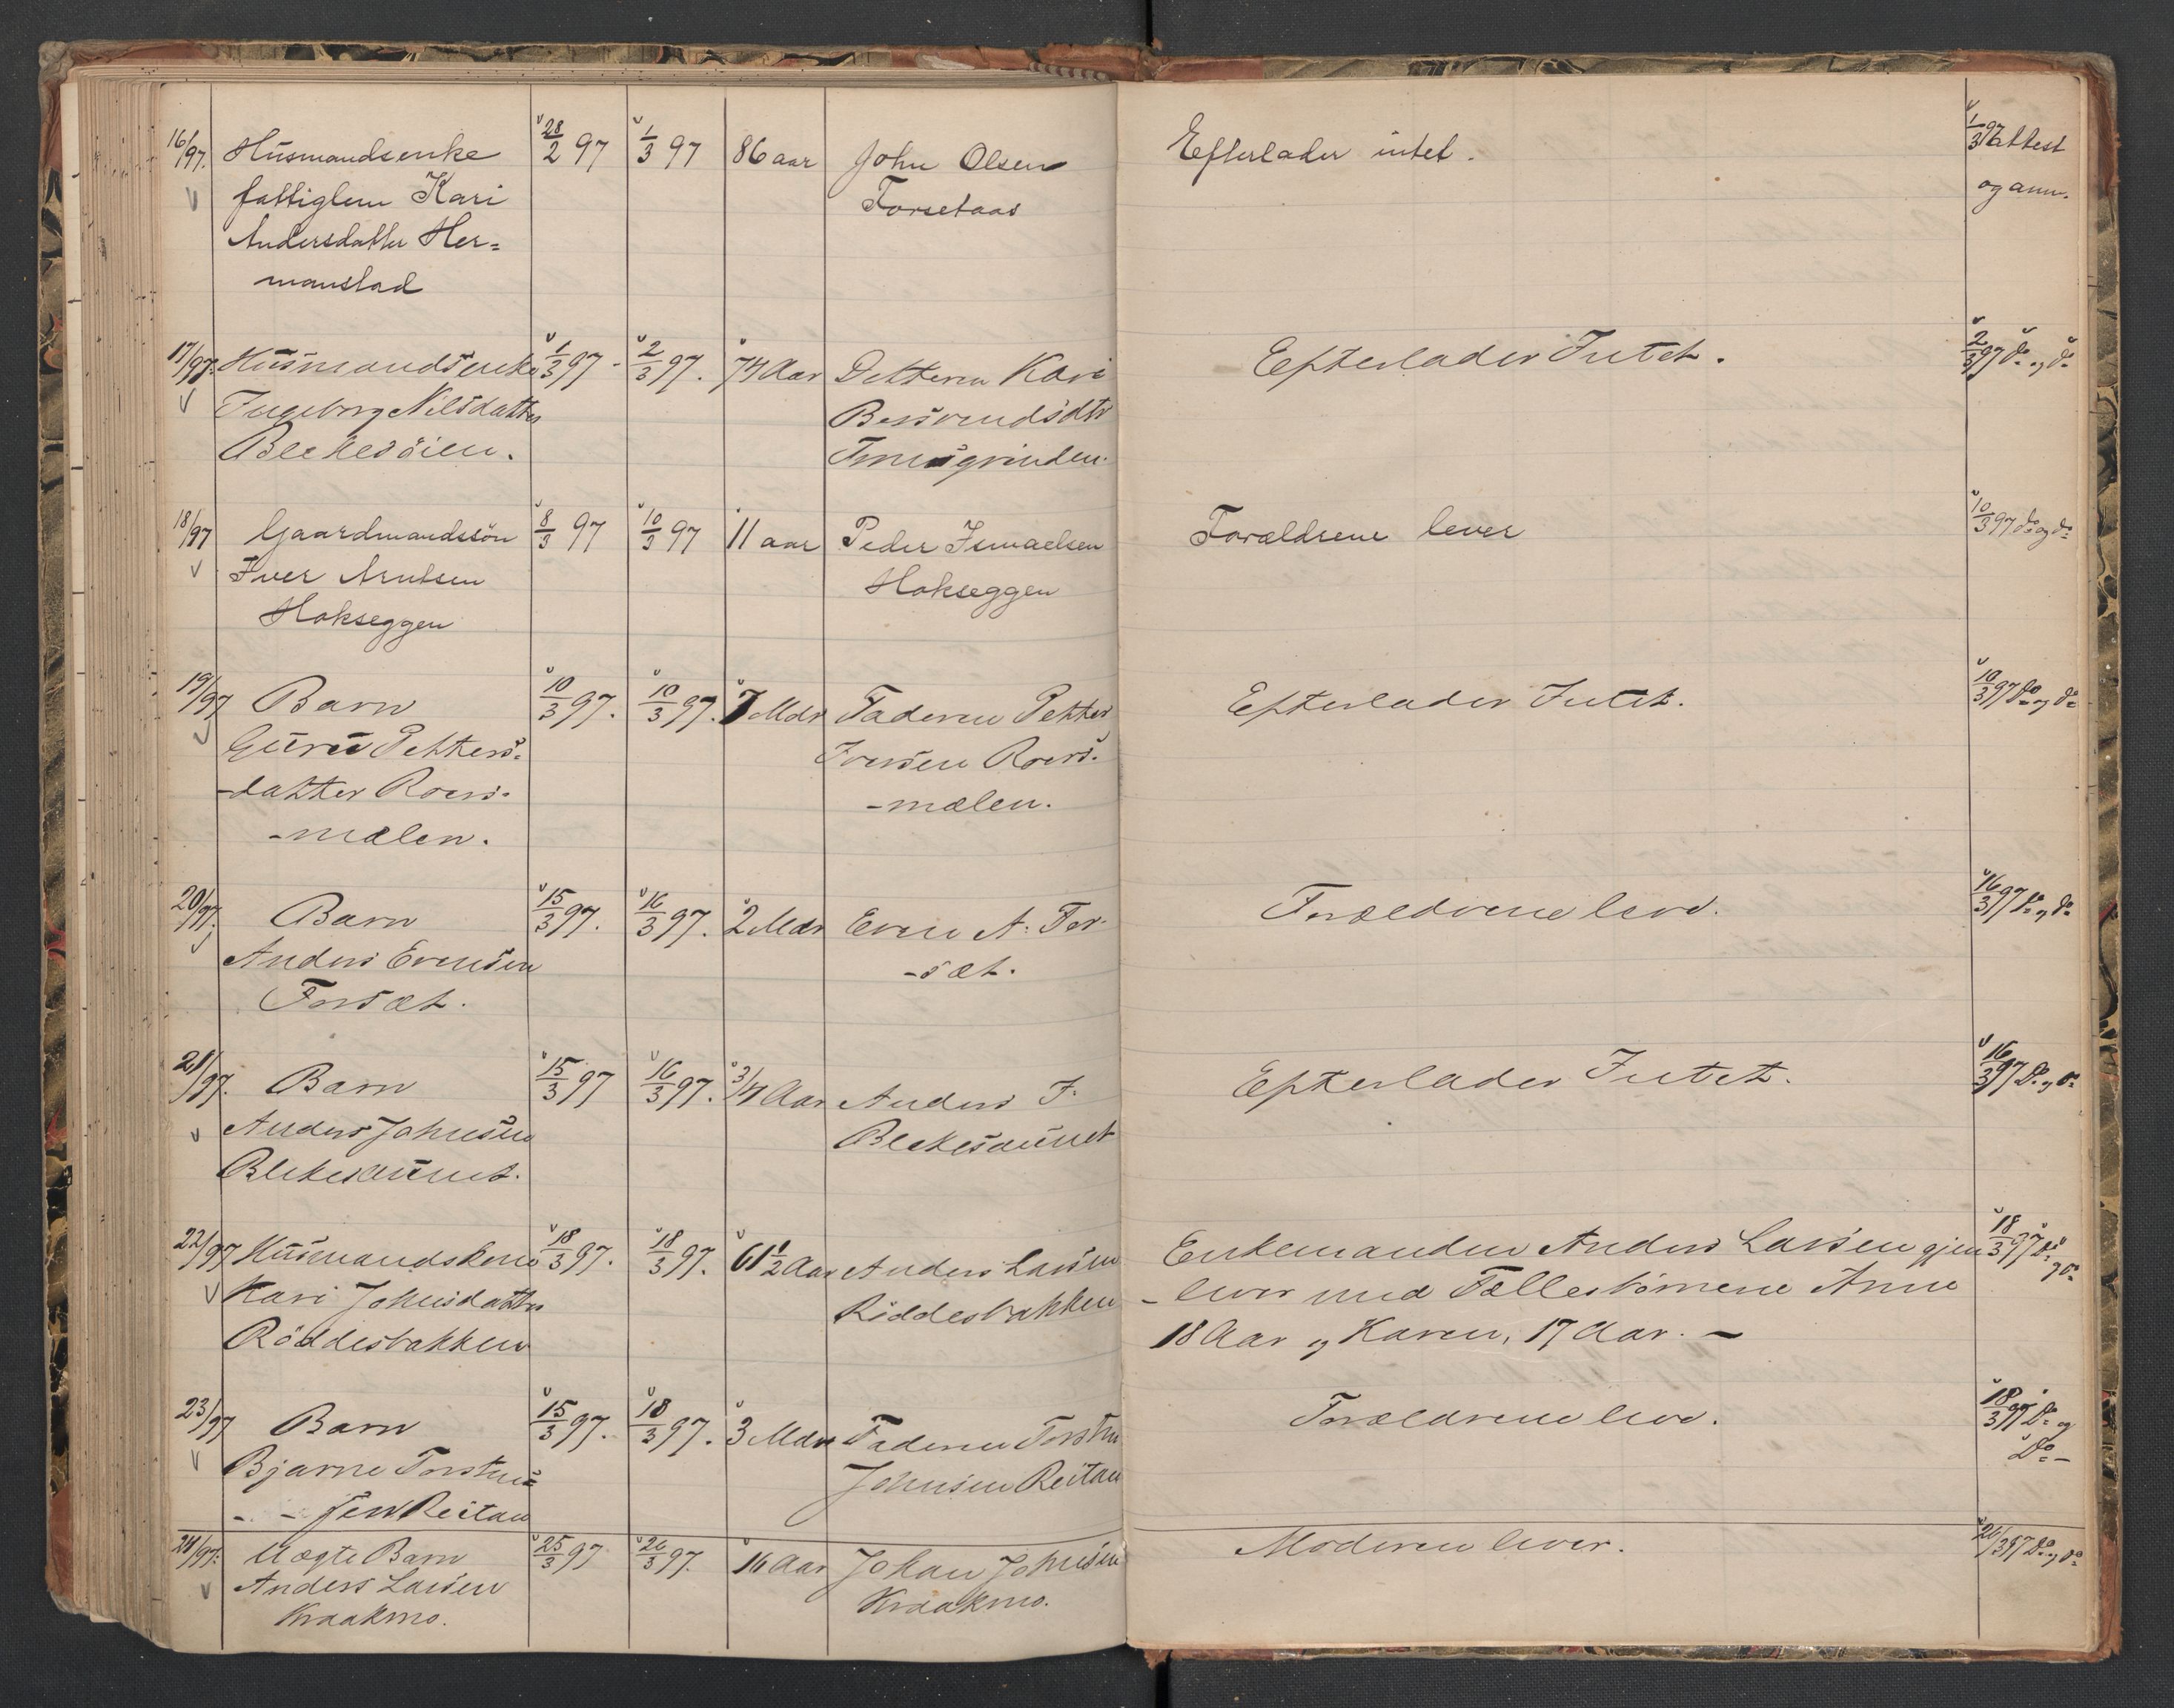 16/97. Husmandsenke 28/2 97 1/3 97 86 aar John Olsen Efterlader intet. 1/3 97 attest
fattiglem Kari Forsetaas og ann.
Andersdatter Her=
manstad
17/97. Husmandsenke 1/3 97 2/3 97. 74 Aar Datteren Kari Efterlader Intet. 2/3 97 Do og Do
Ingeborg Nilsdatter Bersvendsdtr
Blekesöien.
18/97 Gaardmandssön 8/3 97 10/3 97 11 aar Peder Ismaelsen Forældrene lever 10/3 97 do og do
Iver Arntsen Hokseggen
Hokseggen
19/97 Barn 10/3 97. 10/3 97. 7 Mdr Faderen Petter Efterlader Intet. 10/3 97 Do og Do
Guru Petters= Iversen Roers-
-datter Roers- -mælen.
-mælen.
20/97. Barn 15/3 97. 16/3 97. 2 Mdr Even A. For- Forældrene leve. 16/3 97 Do og Do
Anders Evensen -sæt.
Forsæt.
21/97. Barn 15/3 97 16/3 97. 3/4 Aar Anders J. Efterlader Intet. 16/3 97 Do og Do
Anders Johnsen Blekesaunet
Blekesaunet.
22/97 Husmandskone 18/3 97. 18/3 97. 61 1/2 Aar Anders Larsen Enkemanden Anders Larsen gjen 18/3 97 Do og Do
Kari Johnsdatter Röddesbakken -lever med Fællesbørnene Anne
Röddesbakken 18 Aar og Karen, 17 Aar. -
23/97 Barn 15/3 97. 18/3 97. 3 Mdr Faderen Torsten Forældrene leve. 18/3 97 Do og
Bjarne Torsten= Johnsen Reitan Do -
- - sen Reitan
24/97. Uægte Barn 25/3 97 26/3 97. 16 Aar Johan Johnsen Moderen lever. 26/3 97 Do og Do
Anders Larsen Kraakmo.
Kraakmo.